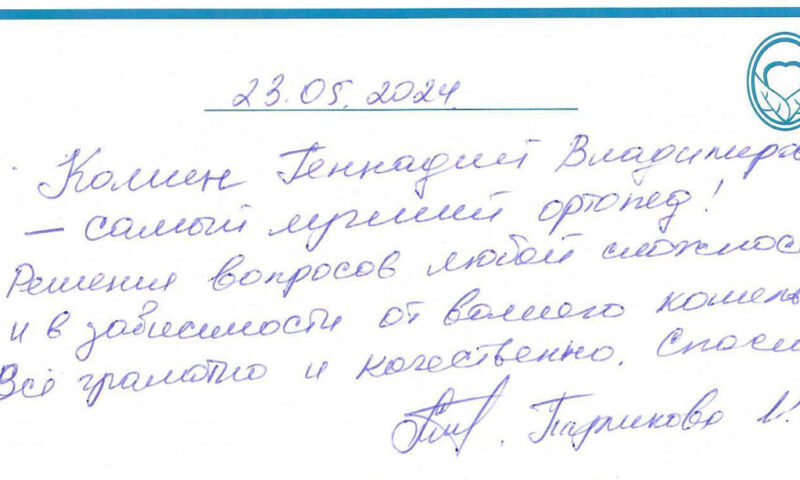 23.05.2024
Комин Геннадий Владимиров
– самый лучший ортопед!
Решения вопросов любой сложнос
и в зависимости от вашего кошель
Всё грамотно и качественно. Спаси